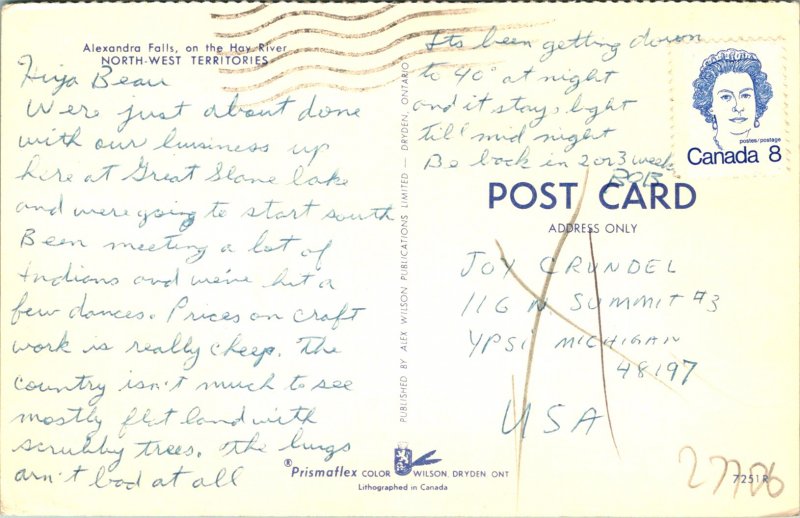 Alexandra Falls, on the Hay River
NORTH-WEST TERRITORIES
Hiya Bean
Were just about done
with our business up
here at Great Slave lake
and were going to start south
Been meeting a lot of
Indians and we've hit a
few dances. Prices on craft
work is really cheep. The
country isn't much to see
mostly flat land with
scrubby trees. The bugs
ain't bad at all
Its been getting down
to 40° at night
and it stays light
till mid night
Be back in 2 or 3 weeks
BOB
PUBLISHED BY ALEX WILSON PUBLICATIONS LIMITED — DRYDEN, ONTARIO
postes/postage
Canada 8
POST CARD
ADDRESS ONLY
JOY CRUNDEL
116 N. SUMMIT #3
YPSI MICHIGAN
48197
USA
®Prismaflex COLOR WILSON, DRYDEN ONT
Lithographed in Canada
7251R